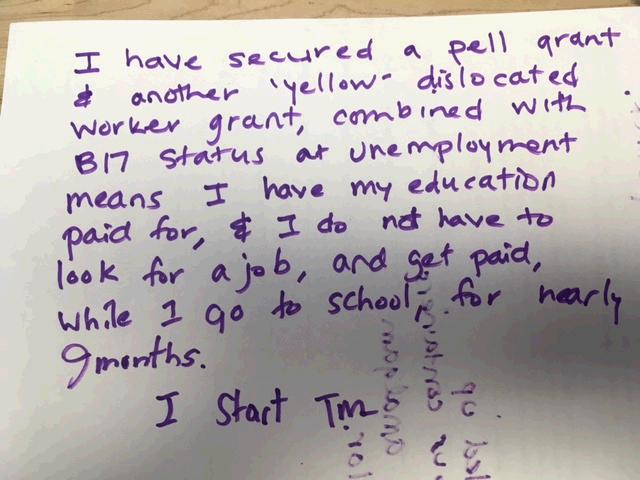 I have secured a pell grant
& another 'yellow' dislocated
worker grant, combined with
B17 status at unemployment
means I have my education
paid for, & I do not have to
look for a job, and get paid,
while I go to school, for nearly
9 months.
I start Tm